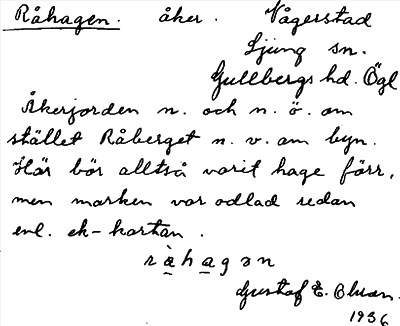 Råhagen. åker. Vågerstad
Ljung sn.
Gullbergs hd. Ögl
Åkerjorden n. och n. ö. om
stället Råberget n. v. om byn.
Här bör alltså varit hage förr,
men marken var odlad redan
enl. ek-kartan.
rà̱ha̱gən
Gustaf E. Olsson.
1936